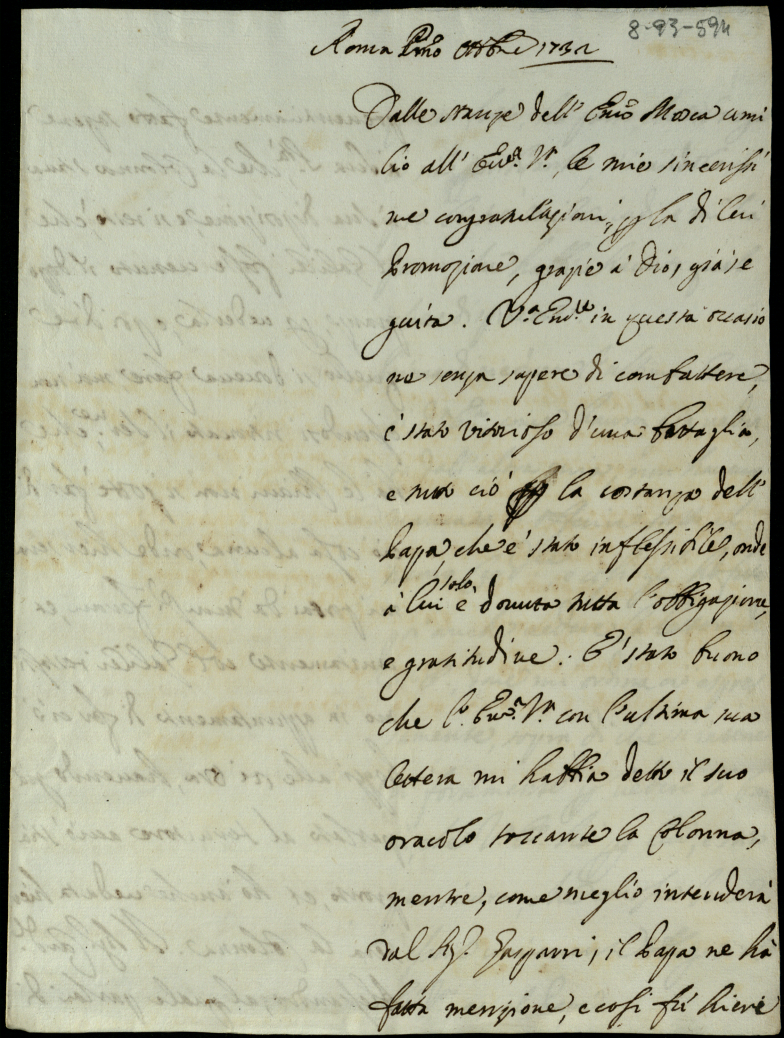 8-93-594
Roma Pmo Ottbre 1732
Dalle stanze dell' Emo Mosca umi
lio all' Emza Vra le mie sincerissi
me congratulazioni, p la di lei
Promozione, grazie à Dio, già se
guita. Va Emza in questa occasio
ne senza sapere di combattere,
è stato vittorioso d'una battaglia,
e tutto ciò p la costanza dell'
Papa, che è stato inflessibile, onde
à lui solo è dovuta tutta l'obbligazione,
e gratitudine. E' stato buono
che l' Emza Vra con l'ultima sua
lettera mi habbia detto il suo
oracolo toccante la Colonna,
mentre, come meglio intenderà
dal Sigr Gasparri, il Papa ne hà
fatta menzione, e così fù hieri